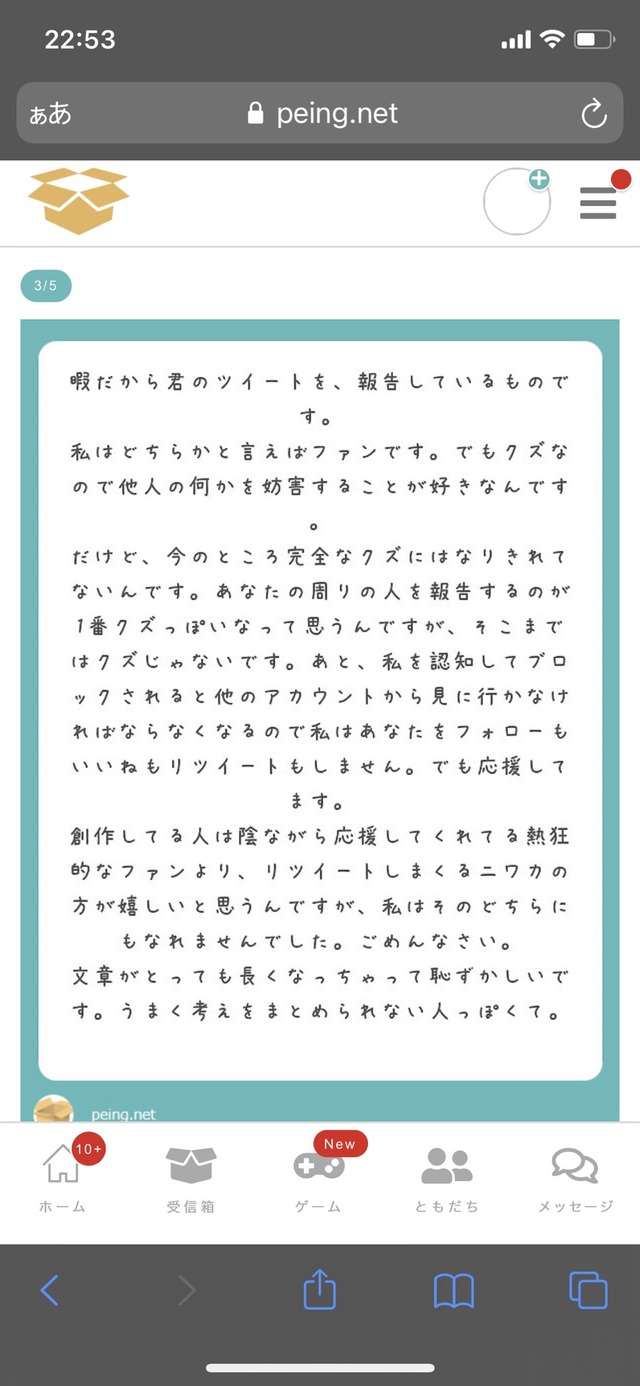 22:53
ぁあ
peing.net
3/5
暇だから君のツイートを、報告しているもので
す。
私はどちらかと言えばファンです。でもクズな
ので他人の何かを妨害することが好きなんです
。
だけど、今のところ完全なクズにはなりきれて
ないんです。あなたの周りの人を報告するのが
1番クズっぽいなって思うんですが、そこまで
はクズじゃないです。あと、私を認知してブロ
ックされると他のアカウントから見に行かなけ
ればならなくなるので私はあなたをフォローも
いいねもリツイートもしません。でも応援して
ます。
創作してる人は陰ながら応援してくれてる熱狂
的なファンより、リツイートしまくるニワカの
方が嬉しいと思うんですが、私はそのどちらに
もなれませんでした。ごめんなさい。
文章がとっても長くなっちゃって恥ずかしいで
す。うまく考えをまとめられない人っぽくて。
peing.net
10+
New
ホーム
受信箱
ゲーム
ともだち
メッセージ